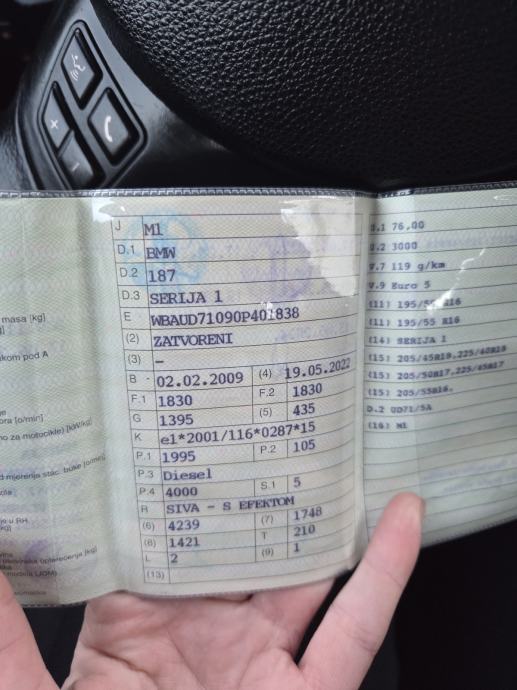 masa [kg]
kom pod A
J M1
D.1 BMW
D.2 187
D.3 SERIJA 1
E WBAUD71090P401838
(2) ZATVORENI
(3) –
B 02.02.2009 (4) 19.05.2022
F.1 1830 F.2 1830
G 1395 (5) 435
K e1*2001/116*0287*15
P.1 1995 P.2 105
P.3 Diesel
P.4 4000 S.1 5
R SIVA - S EFEKTOM
(6) 4239 (7) 1748
(8) 1421 T 210
L 2 (9) 1
(13)
U.1 76,00
U.2 3000
V.7 119 g/km
V.9 Euro 5
(11) 195/55 R16
(11) 195/55 R16
(14) SERIJA 1
(15) 205/45R18,225/40R18
(15) 205/50R17,225/45R17
(15) 205/55R16.
D.2 UD71/5A
(16) M1